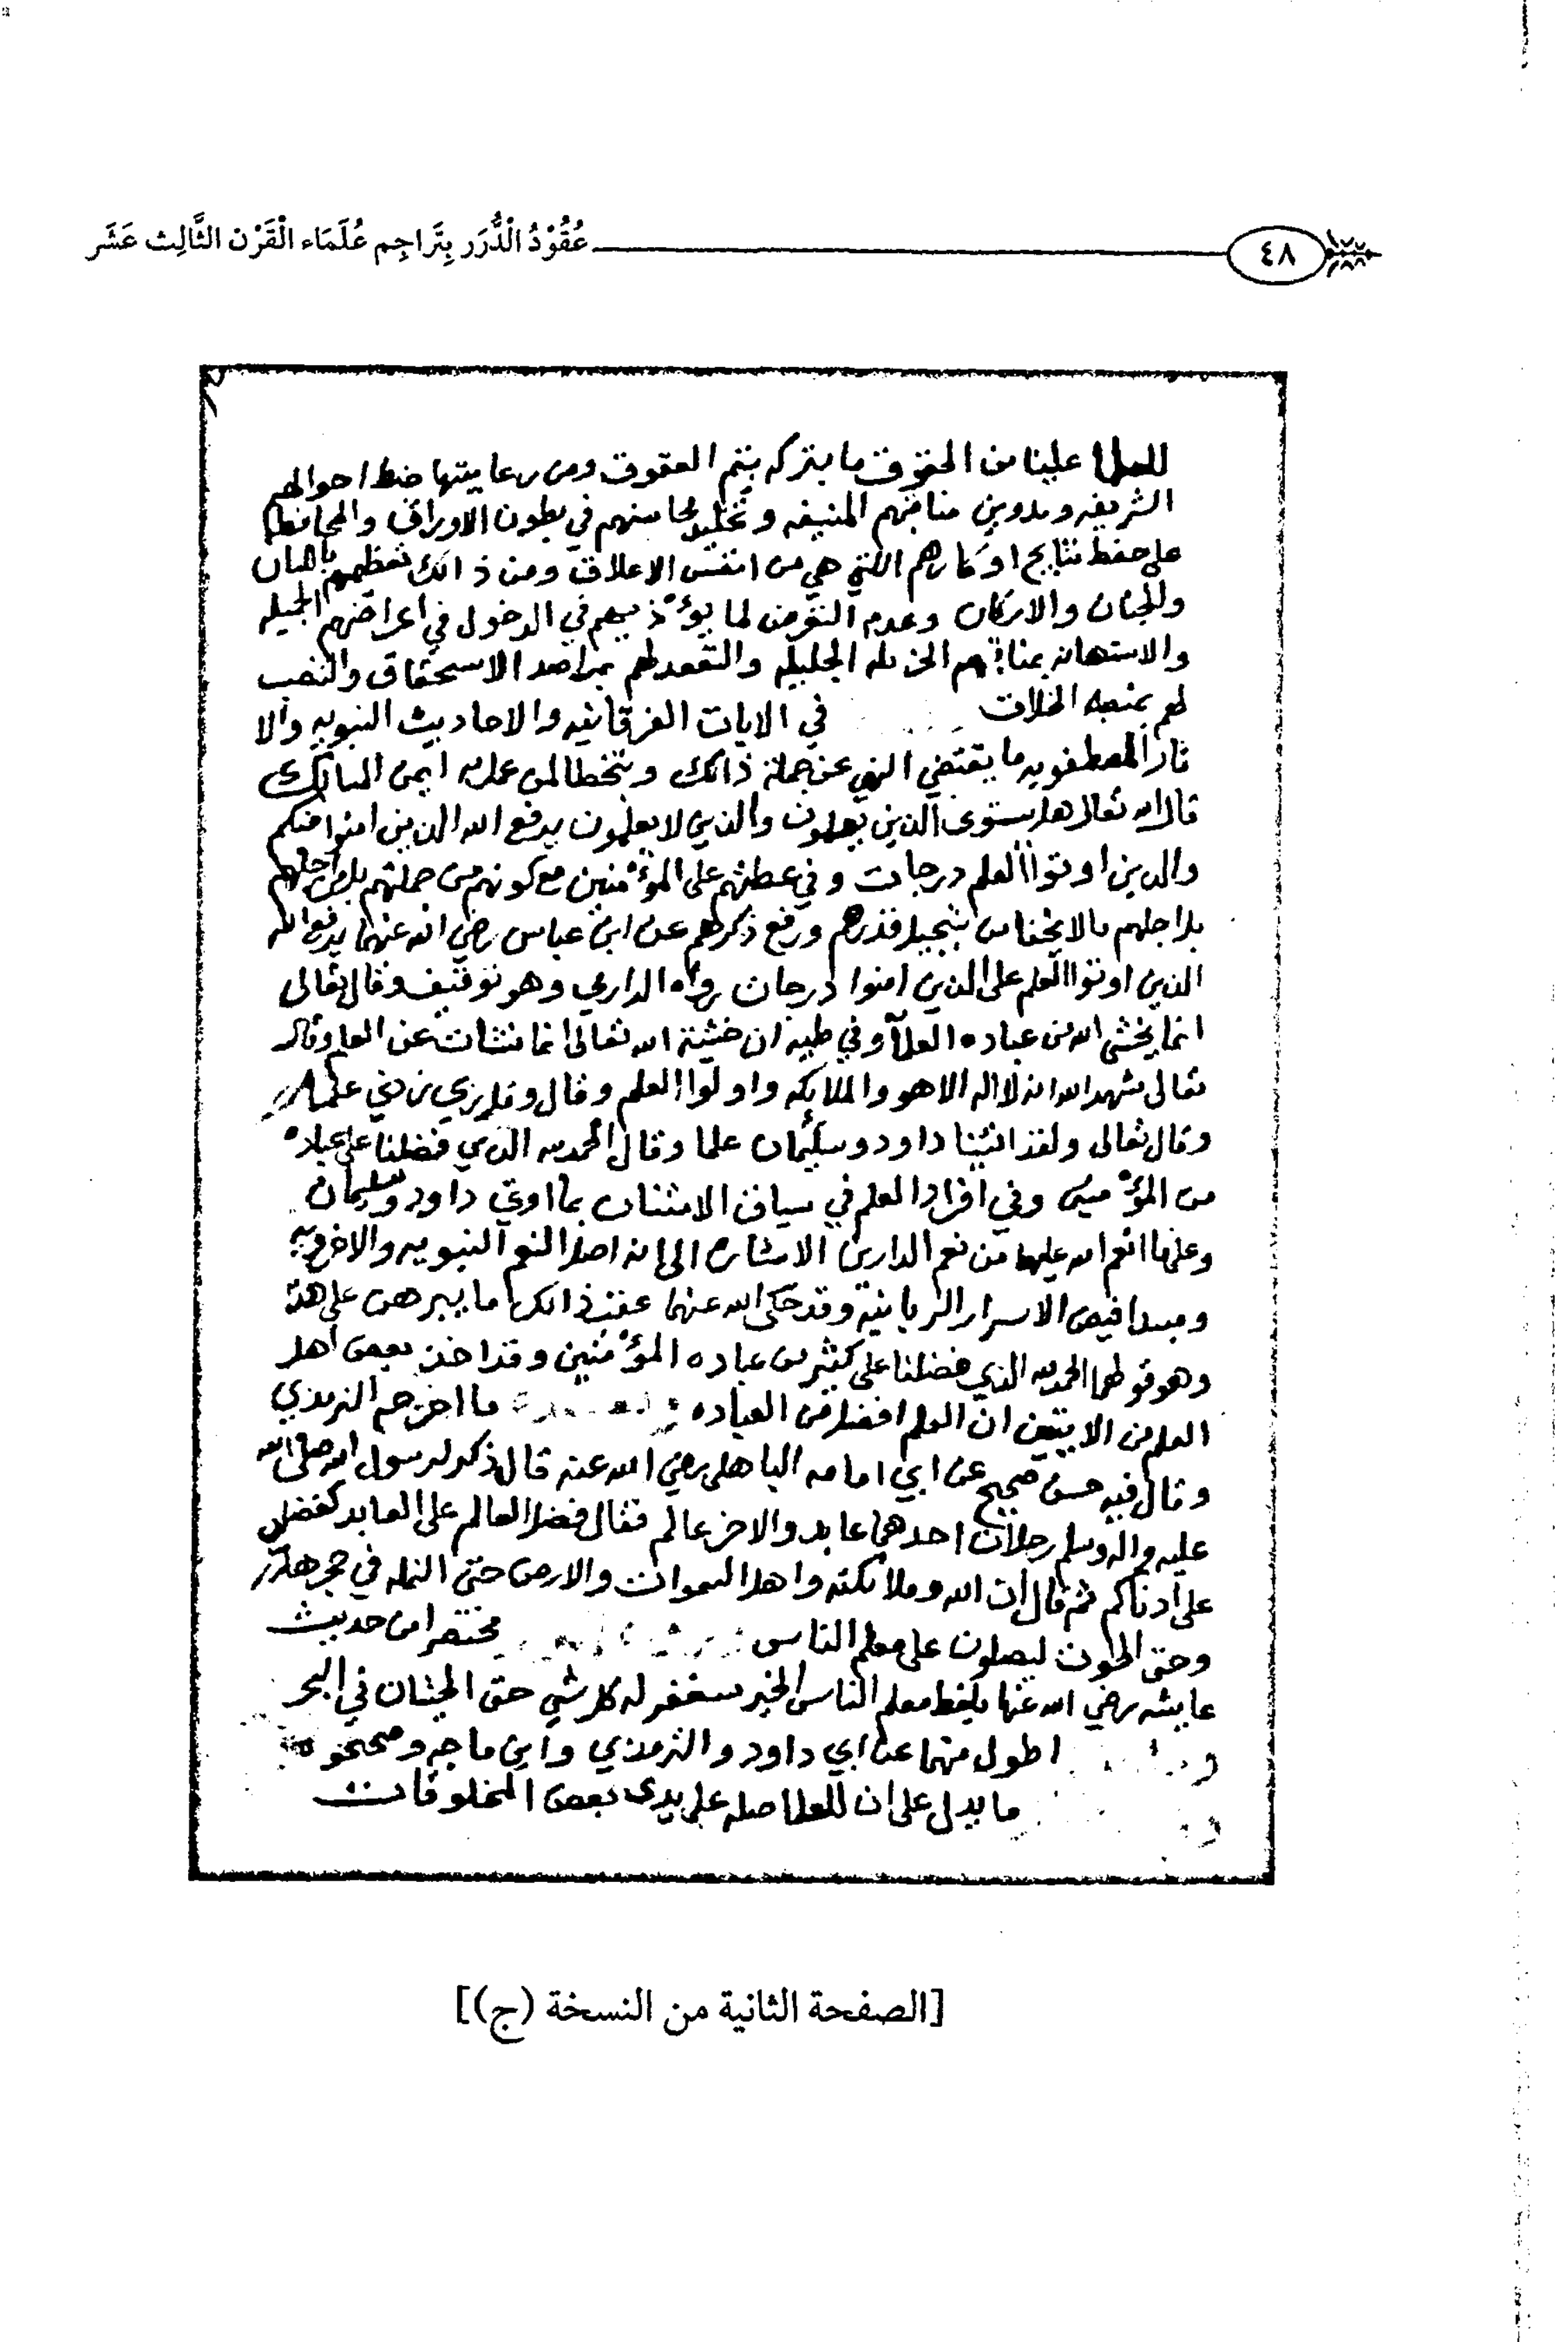 ٤٨ عُقُوْدُ الْدُّرَر بِتَرَاجِم عُلَمَاء الْقَرْن الثَّالِث عَشَر
للعلما علينا من الحقوق ما بتركه يتم العقوق ومن رعايتها ضبط احوالهم
الشريفه وتدوين مناقبهم المنيفه وتخليد محاسنهم في بطون الاوراق والمحافظه
على حفظ نتايج افكارهم اللتي هي من انفس الاعلاق ومن ذالك تعظيمهم باللسان
والجنان والاركان وعدم التعرض لما يوذيهم في الدخول في اعراضهم الجميله
والاستهانه بمناقبهم الجليله والتقعد لهم بمراصد الاستحقاق والنصب
لهم بمنصه الخلاف في الايات الفرقانيه والاحاديث النبويه والا
ثار المصطفويه ما يقتضي النهي عن جملة ذالك وتخطا لمن عمل به ايمن المسالك
قال الله تعالى هل يستوى الذين يعلمون والذين لا يعلمون يرفع الله الذين امنوا منكم
والذين اوتوا العلم درجات وفي عطفهم على المؤمنين مع كونهم من جملتهم بل من اجلهم
بل اجلهم مالا يخفا من تبجيل قدرهم ورفع ذكرهم عن ابن عباس رضي الله عنهما يرفع الله
الذين اوتوا العلم على الذين امنوا درجات رواه الدارمي وهو توقيف وقال تعالى
انما يخشى الله من عباده العلمآ وفي طيه ان خشية الله تعالى انما نشات عن العلم وقال
تعالى شهد الله انه لا اله الا هو والملايكه واولوا العلم وقال وقل ربي زدني علما
وقال تعالى ولقد اتينا داود وسليمان علما وقالا الحمد لله الذي فضلنا على عباده
من المؤمنين وفي افراد العلم في سياق الامتنان بما اوتي داود وسليمان
وعلى ما انعم الله عليهما من نعم الدارين الاشاره الى انه اصل النعم النبويه والاخرويه
ومبدا فيض الاسرار الربانية وقد حكى الله عنهما عقب ذالك ما يبرهن على هذا
وهو قولهما الحمد لله الذي فضلنا على كثير من عباده المؤمنين وقد اخذ بعض اهل
العلم من الايتين ان العلم افضل من العباده ما اخرجه الترمذي
وقال فيه حسن صحيح عن ابي امامه الباهلي رضي الله عنه قال ذكر لرسول الله صلى الله
عليه واله وسلم رجلان احدهما عابد والاخر عالم فقال فضل العالم على العابد كفضلي
على ادناكم ثم قال ان الله وملائكته واهل السموات والارض حتى النمله في جحرها
وحتى الحوت ليصلون على معلم الناس مختصرا من حديث
عايشه رضي الله عنها بلفظ معلم الناس الخير يستغفر له كل شي حتى الحيتان في البحر
اطول منهما عن ابي داود والترمذي وابن ماجه وصححوه
ما يدل على ان للعلما صله على يدى بعض المخلوقات
[الصفحة الثانية من النسخة (ج)]